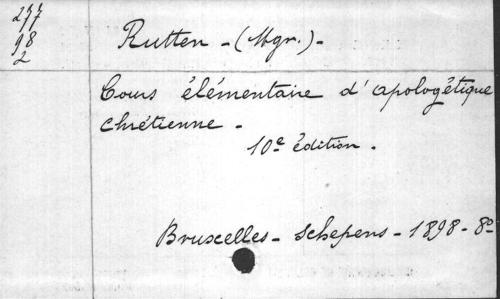 277
98
2
Rutten - (Mgr.) -
Cours élémentaire d'apologétique
chrétienne -
10e édition.
Bruxelles - Schepens - 1898 - 8o